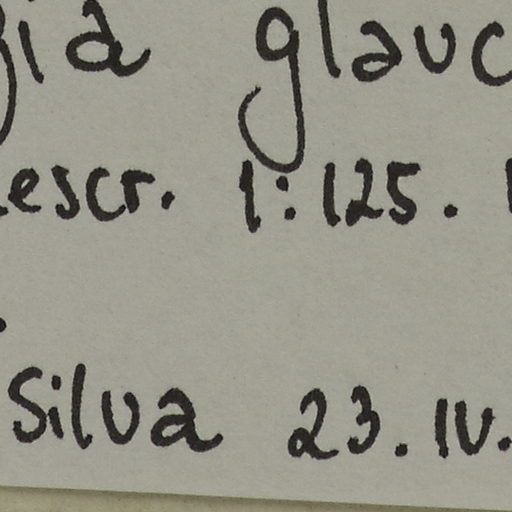 gia glauc
escr. 1:125. 1
.
Silva 23.IV.